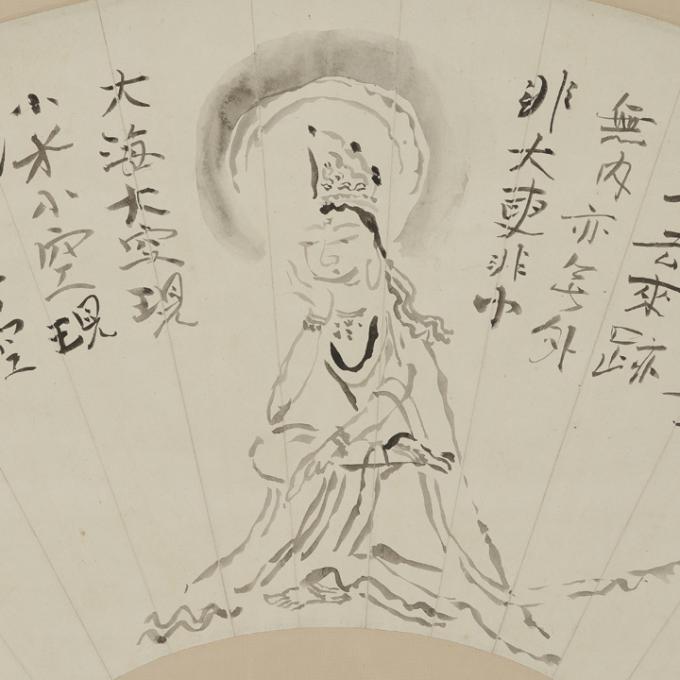 去來跡
無内亦無外
非大更非小
大海大空現
小水小空現
空